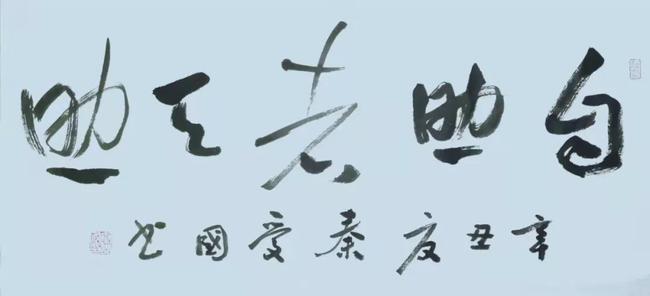 自助者天助
辛丑夏秦爱國书